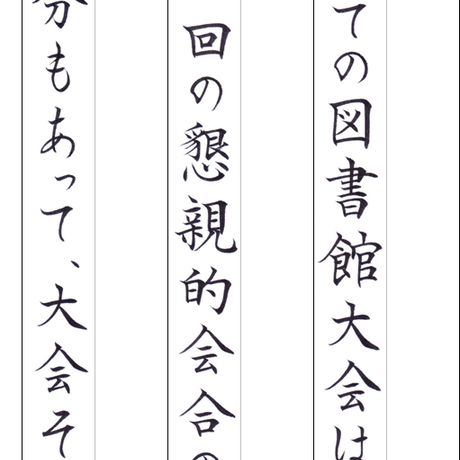 ての図書館大会は
回の懇親的会合の
分もあって、大会そ